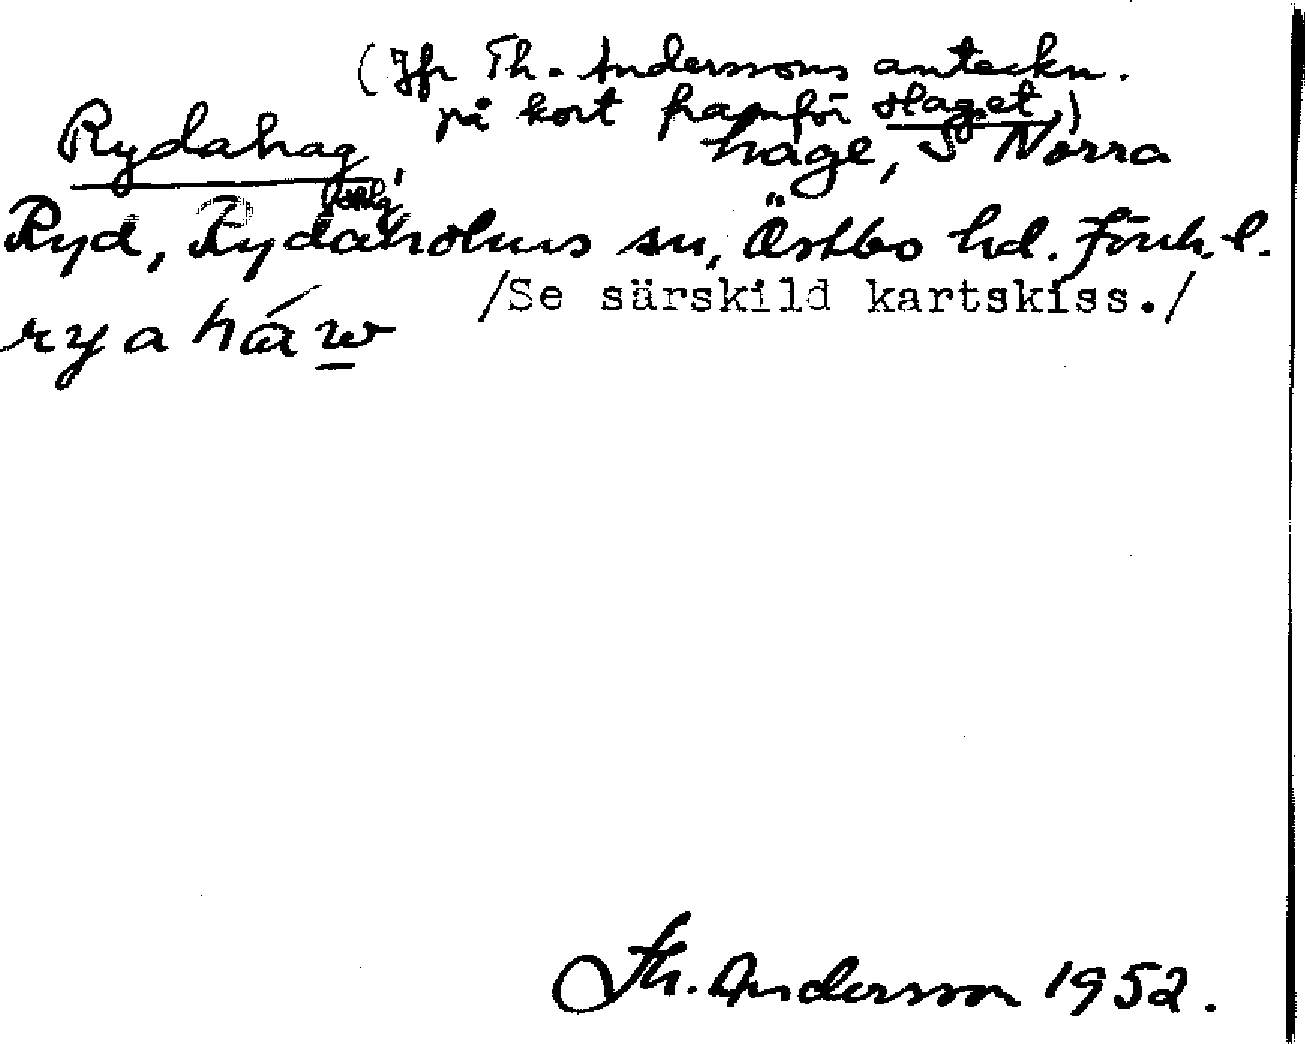 (Jfr Th. Anderssons anteckn.
på kort framför Haget.)
Rydahag, hage, S Norra
Ryd, Rydaholms sn, Östbo hd. Jönk. l.
/Se särskild kartskiss./
ryahá w
Th. Andersson 1952.